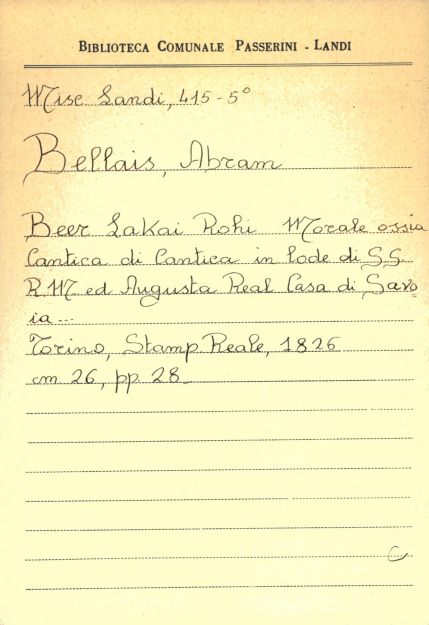 BIBLIOTECA COMUNALE PASSERINI - LANDI
Misc Landi, 415-5°
Bellais, Abram
Beer Lakai Rohi Morale ossia
Cantica di Cantica in lode di S.S.
R.M ed Augusta Real Casa di Savo
ia...
Torino, Stamp Reale, 1826
cm 26, pp 28
C